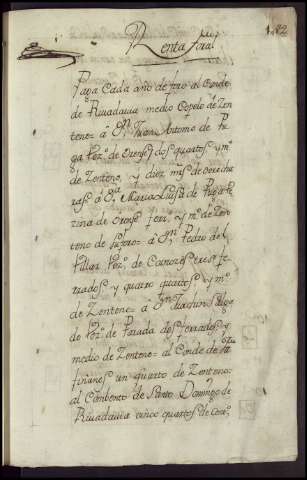 182
Renta foral
Paga Cada año de foro al Conde
de Rivadavia medio Copelo de Zen
teno: à Dn. Juan Antonio de Pu
ga Vez.o de Orense dos quartos y mo.
de Zenteno, y diez mrs. de derechu
ras: à Da. Maria Luisa de
zina de Orense ferr. y mo. de Zen
teno de su foro: à Dn. Pedro del
Villar Vez.o de tres fe
rrados y quatro quartos y mo.
de Zenteno: à Dn. Joachin
do Vez.o de Parada dos ferrados y
medio de Zenteno: al Conde de
un quarto de Zenteno:
al Combento de Santo Domingo de
Rivadavia cinco quartos de Cent.o